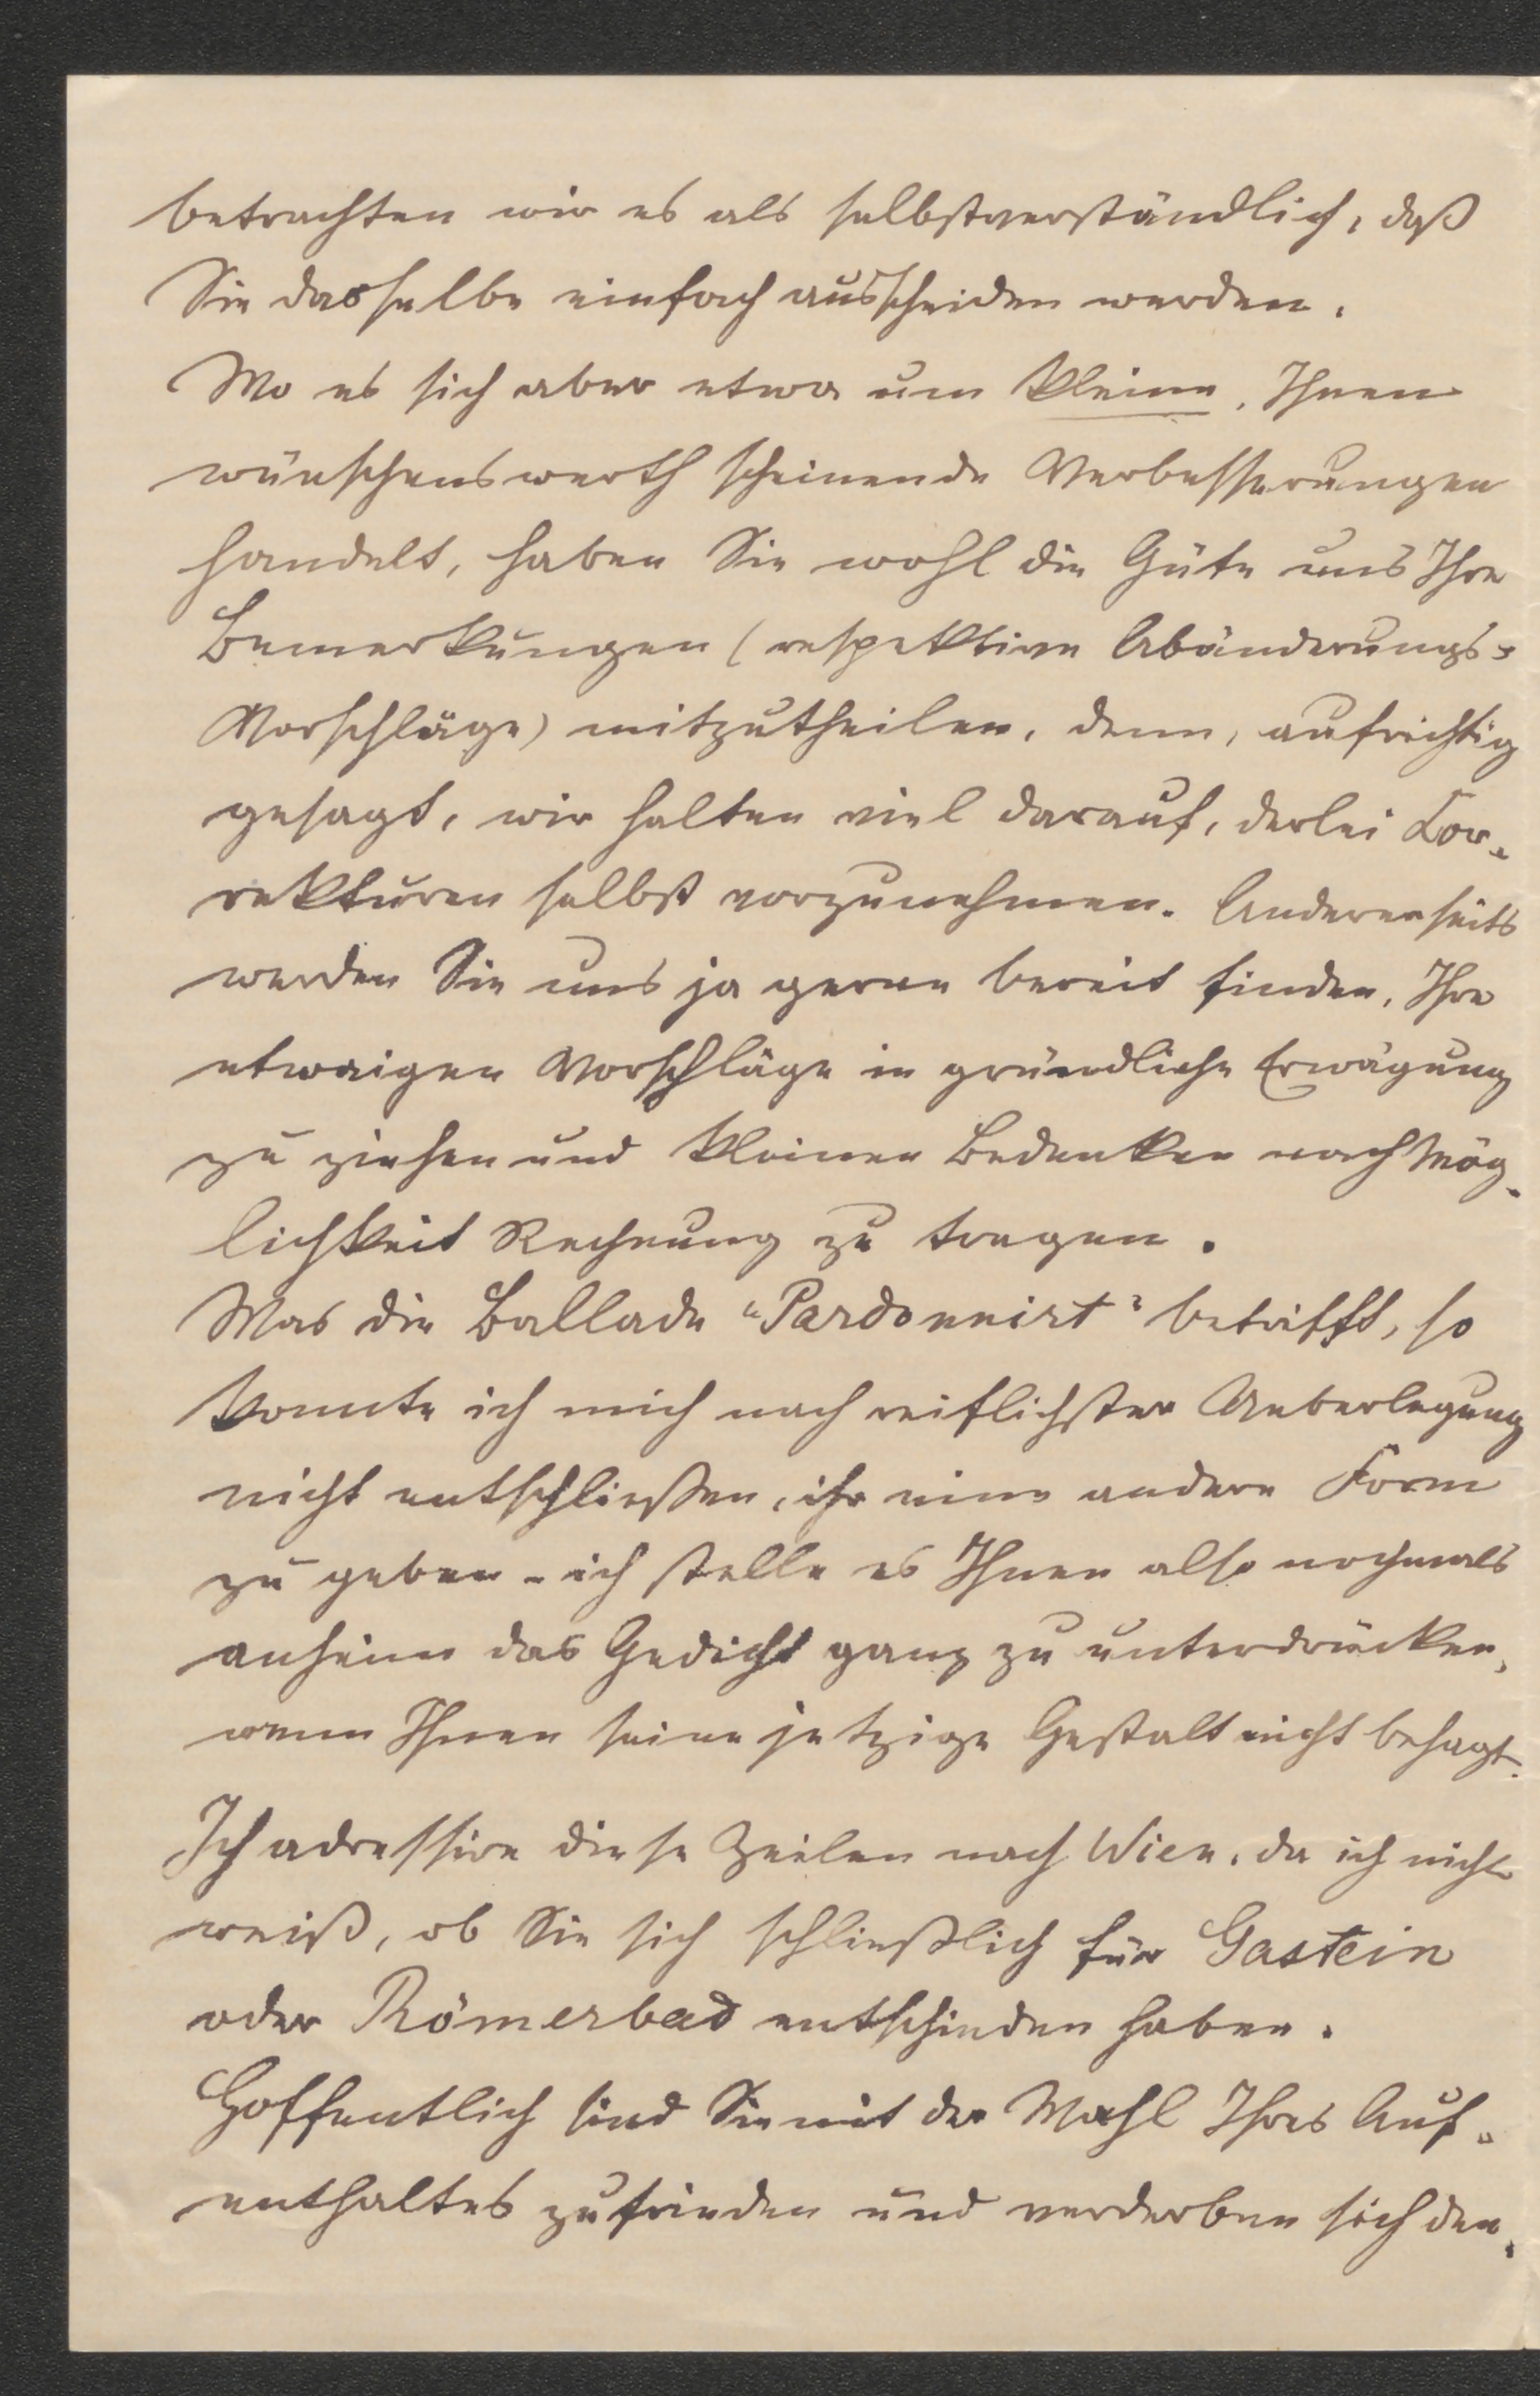 betrachten wir es als selbstverständlich, daß
Sie dasselbe einfach ausscheiden werden.
Wo es sich aber etwa um kleine, Ihnen
wünschenswerth scheinende Verbesserungen
handelt, haben Sie wohl die Güte uns Ihre
Bemerkungen (respektive Abänderungs-
Vorschläge) mitzutheilen, denn, aufrichtig
gesagt, wir halten viel darauf, derlei Cor-
rekturen selbst vorzunehmen. Andererseits
werden Sie uns ja gerne bereit finden, Ihre
etwaigen Vorschläge in gründliche Erwägung
zu ziehen und kleinen Bedenken nach Mög-
lichkeit Rechnung zu tragen.
Was die Ballade "Pardonnirt" betrifft, so
konnte ich mich nach reiflichster Ueberlegung
nicht entschließen, ihr eine andere Form
zu geben - ich stelle es Ihnen also nochmals
anheim das Gedicht ganz zu unterdrücken,
wenn Ihnen seine jetzige Gestalt nicht behagt.
Ich adressire diese Zeilen nach Wien, da ich nicht
weiß, ob Sie sich schließlich für Gastein
oder Römerbad entschieden haben.
Hoffentlich sind Sie mit der Wahl Ihres Auf-
enthaltes zufrieden und verderben sich den-